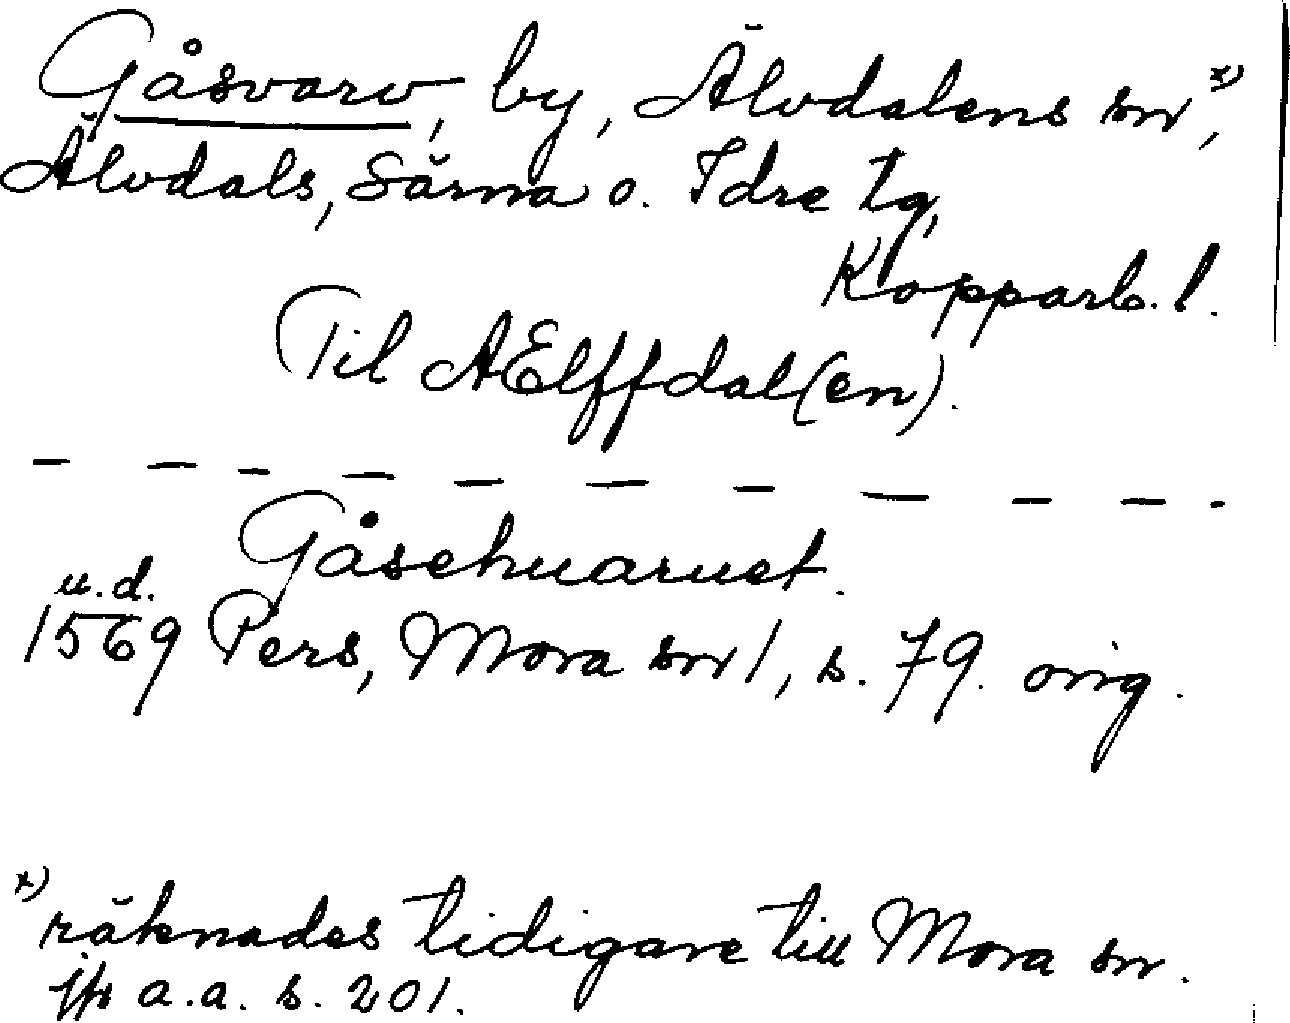 Gåsvarv, by, Älvdalens sn x),
Älvdals, Särna o. Idre tg,
Kopparb. l.
Til AElffdal(en).
— — — — — — — — — — -
Gåsehuaruet.
u.d.
1569 Pers, Mora sn 1, s. 79. orig.
x) räknades tidigare till Mora sn.
jfr a.a. s. 201.